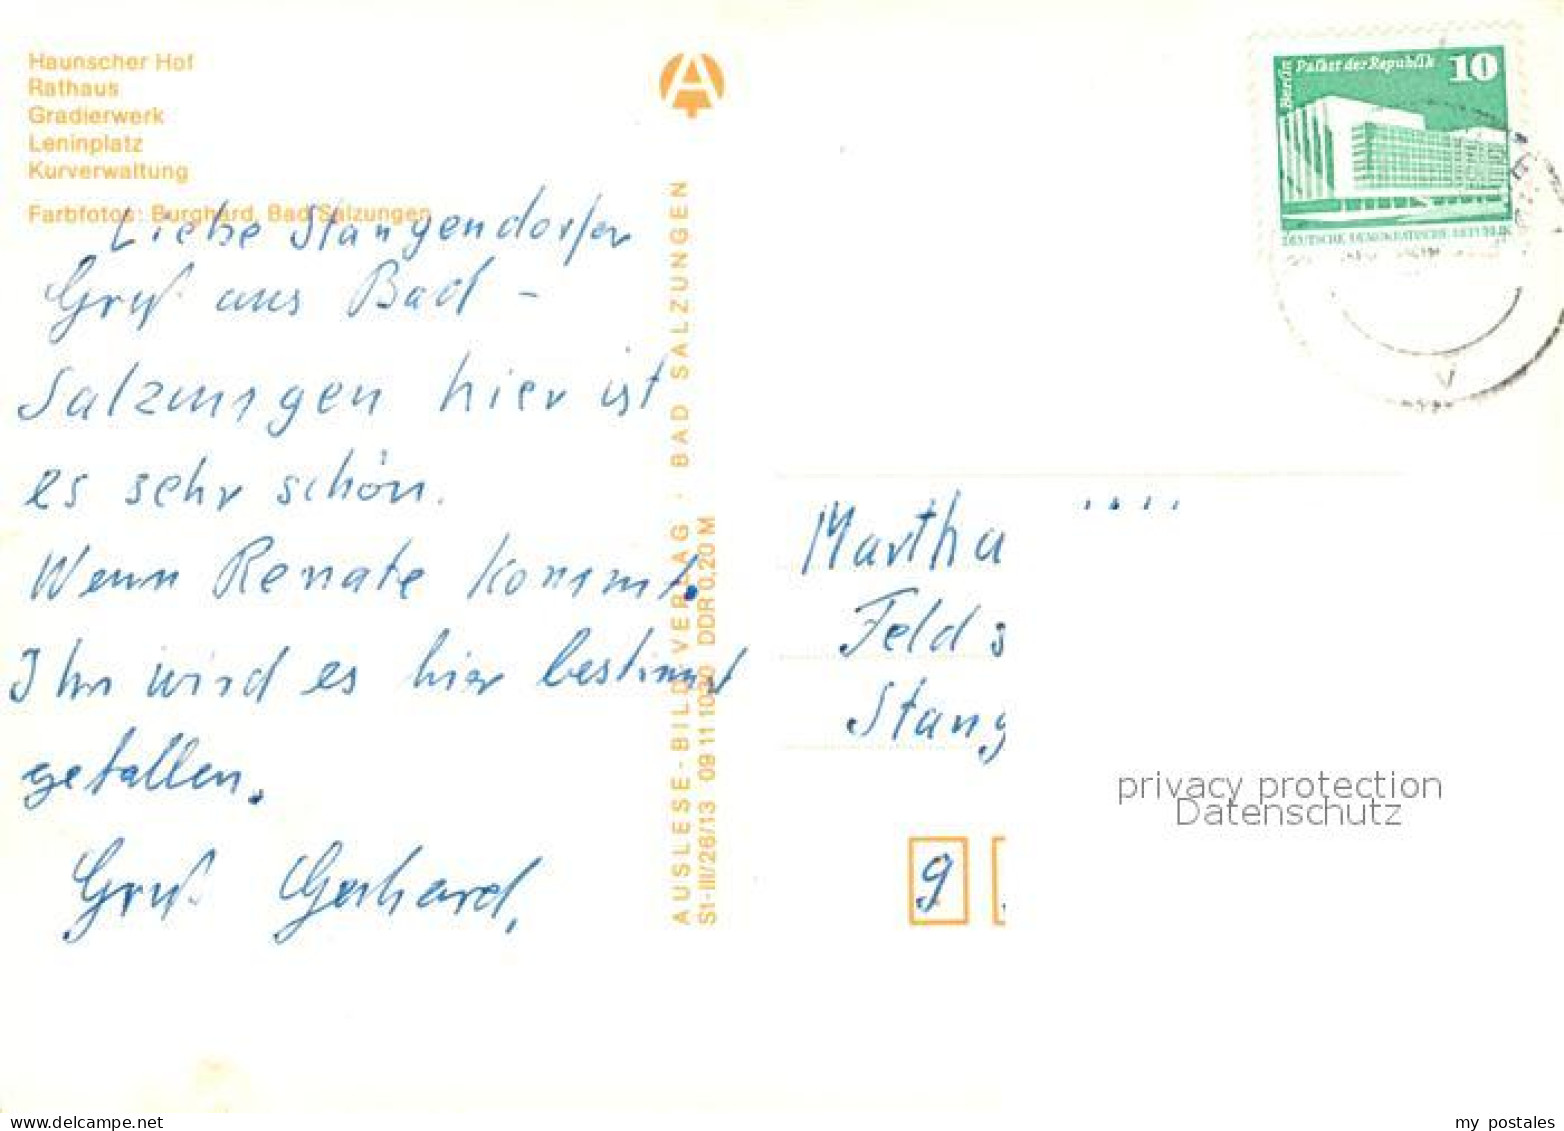 Haunscher Hof
Rathaus
Gradierwerk
Leninplatz
Kurverwaltung
Farbfotos: Burghard, Bad Salzungen
Liebe Stangendorfer
Gruß aus Bad -
Salzungen hier ist
es sehr schön.
Wenn Renate kommt.
Ihr wird es hier bestimmt
gefallen.
Gruß Gerhard.
AUSLESE-BILD-VERLAG · BAD SALZUNGEN
S1-III/26/13 09 11 1030 DDR 0,20 M
Berlin Palast der Republik 10
DEUTSCHE DEMOKRATISCHE REPUBLIK
Martha
Feld s
Stang
9
privacy protection
Datenschutz
my postales